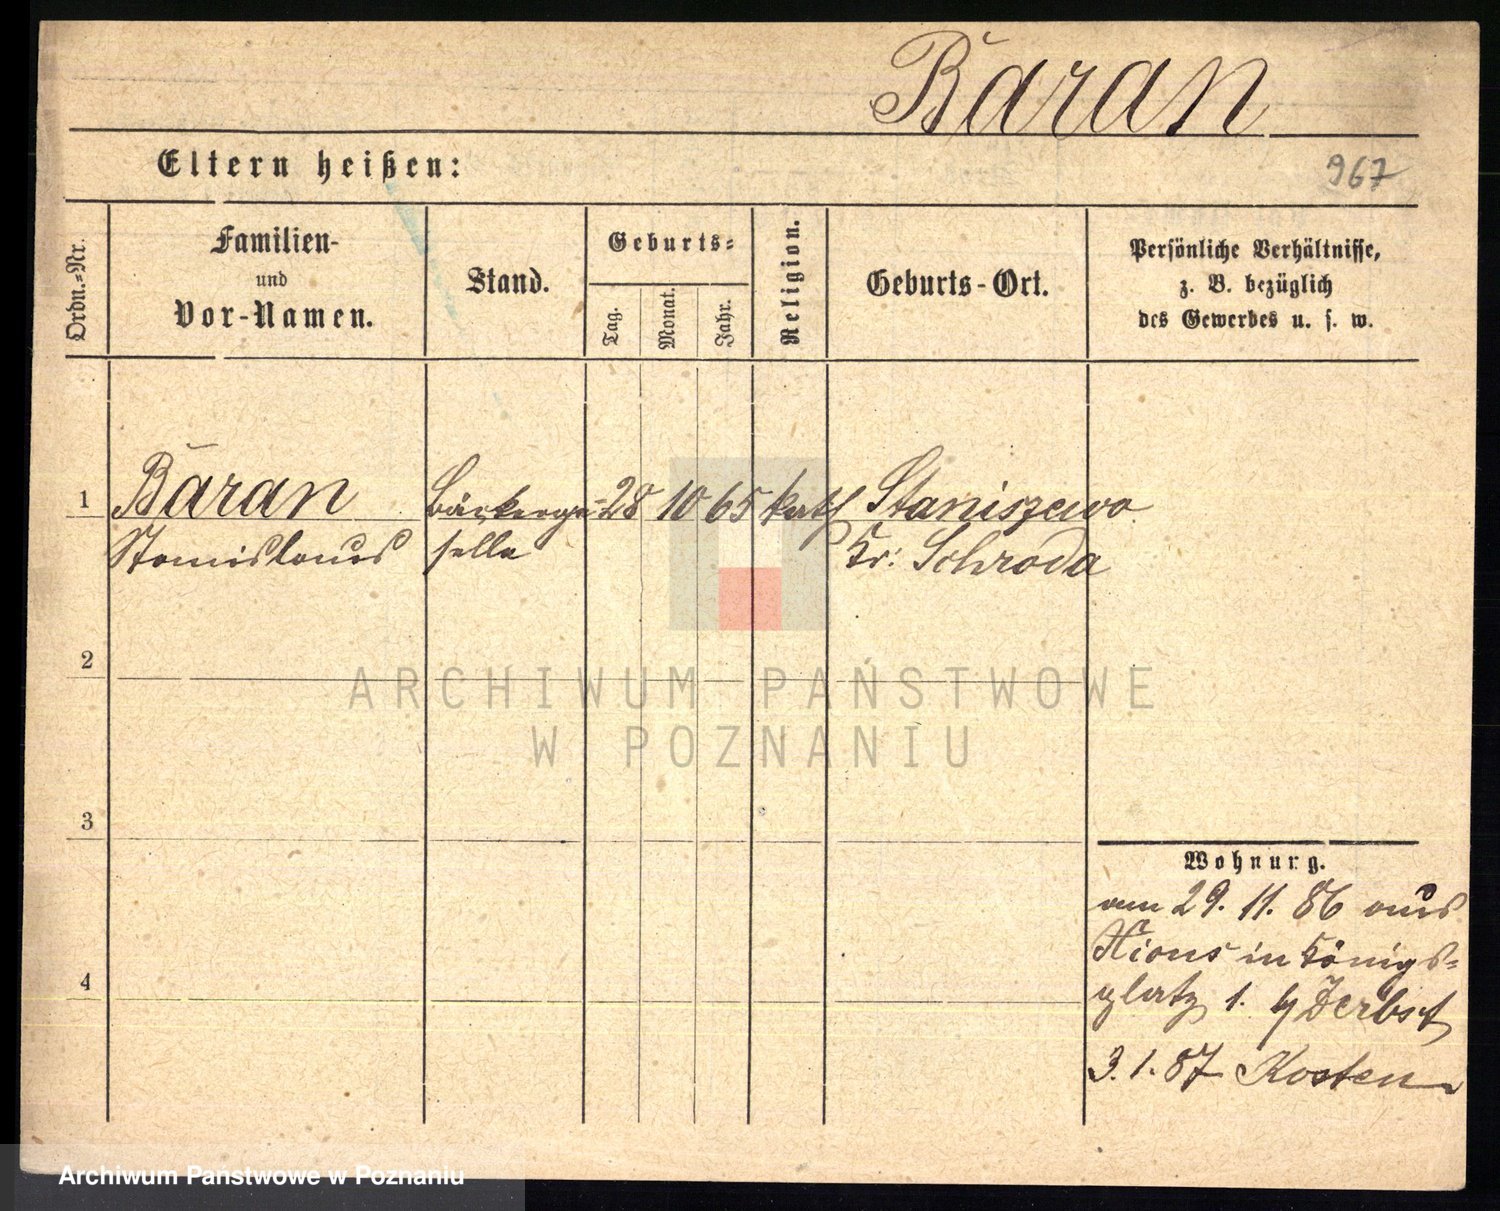 Baran
Eltern heißen:
967
Ordn.=Nr.
Familien-
und
Vor-Namen.
Stand.
Geburts=
Tag.
Monat.
Jahr.
Religion.
Geburts-Ort.
Persönliche Verhältnisse,
z. B. bezüglich
des Gewerbes u. s. w.
1 Baran Bäckerge= 28 10 65 kath Staniszewo
Stanislaus selle Kr: Schroda
2
ARCHIWUM PAŃSTWOWE
W POZNANIU
3
Wohnung.
am 29. 11. 86 aus
Xions in Königs=
4
platz 1. b/ Zerbst
3. 1. 87 Kosten
Archiwum Państwowe w Poznaniu